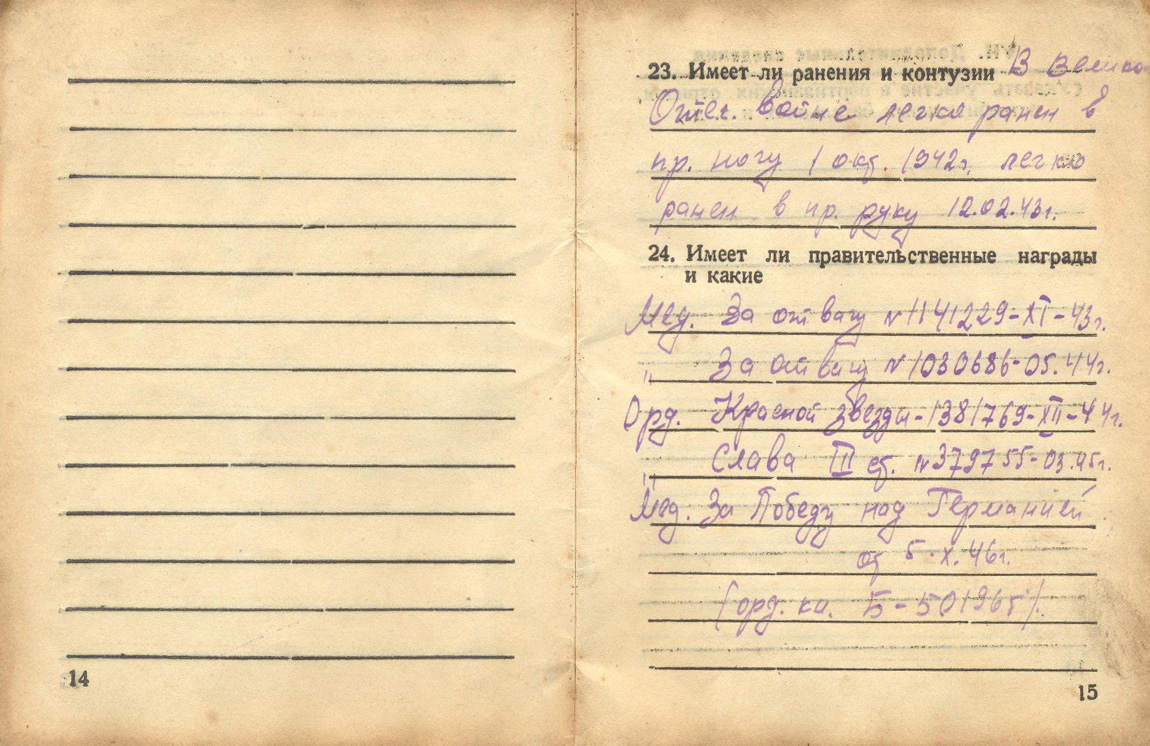 14
23. Имеет ли ранения и контузии В Велико
Отеч. войне легко ранен в
пр. ногу 1 окт. 1942г. легко
ранен в пр. руку 12.02.43г.
24. Имеет ли правительственные награды
и какие
Мед. За отвагу №1141229-XI-43г.
" За отвагу №1030686-05.44г.
Орд. Красной звезды-1381769-XII-44г.
" Слава III ст. №379755-03.45г.
Мед. За Победу над Германией
от 5.X.46г.
(орд. кн. Б-501965).
15